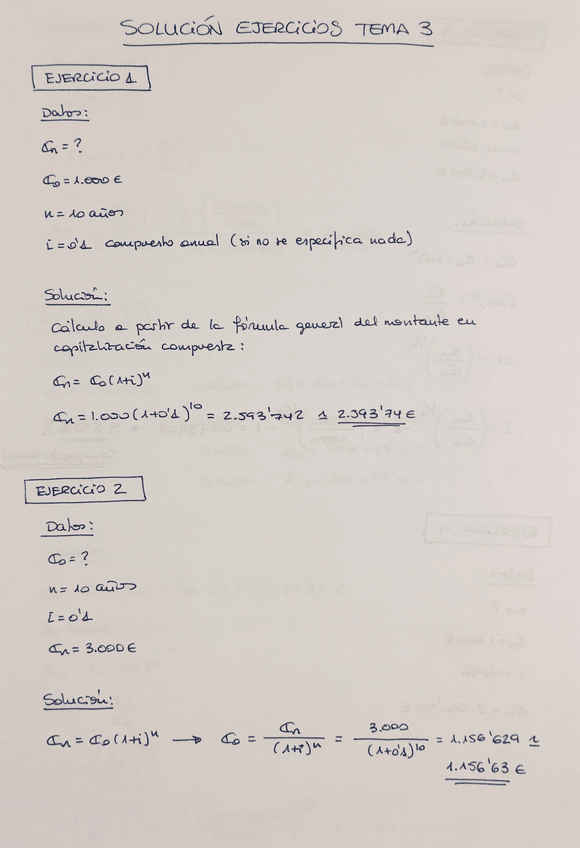 SOLUCIÓN EJERCICIOS TEMA 3
EJERCICIO 1
Datos:
Cn = ?
C0 = 1.000 €
n = 10 años
i = 0'1 compuesto anual (si no se especifica nada)
Solución:
Cálculo a partir de la fórmula general del montante en
capitalización compuesta:
Cn = C0 (1+i)^n
Cn = 1.000 (1+0'1)^10 = 2.593'742 ≃ 2.593'74 €
EJERCICIO 2
Datos:
C0 = ?
n = 10 años
i = 0'1
Cn = 3.000 €
Solución:
Cn = C0 (1+i)^n → C0 = Cn / (1+i)^n = 3.000 / (1+0'1)^10 = 1.156'629 ≃
1.156'63 €